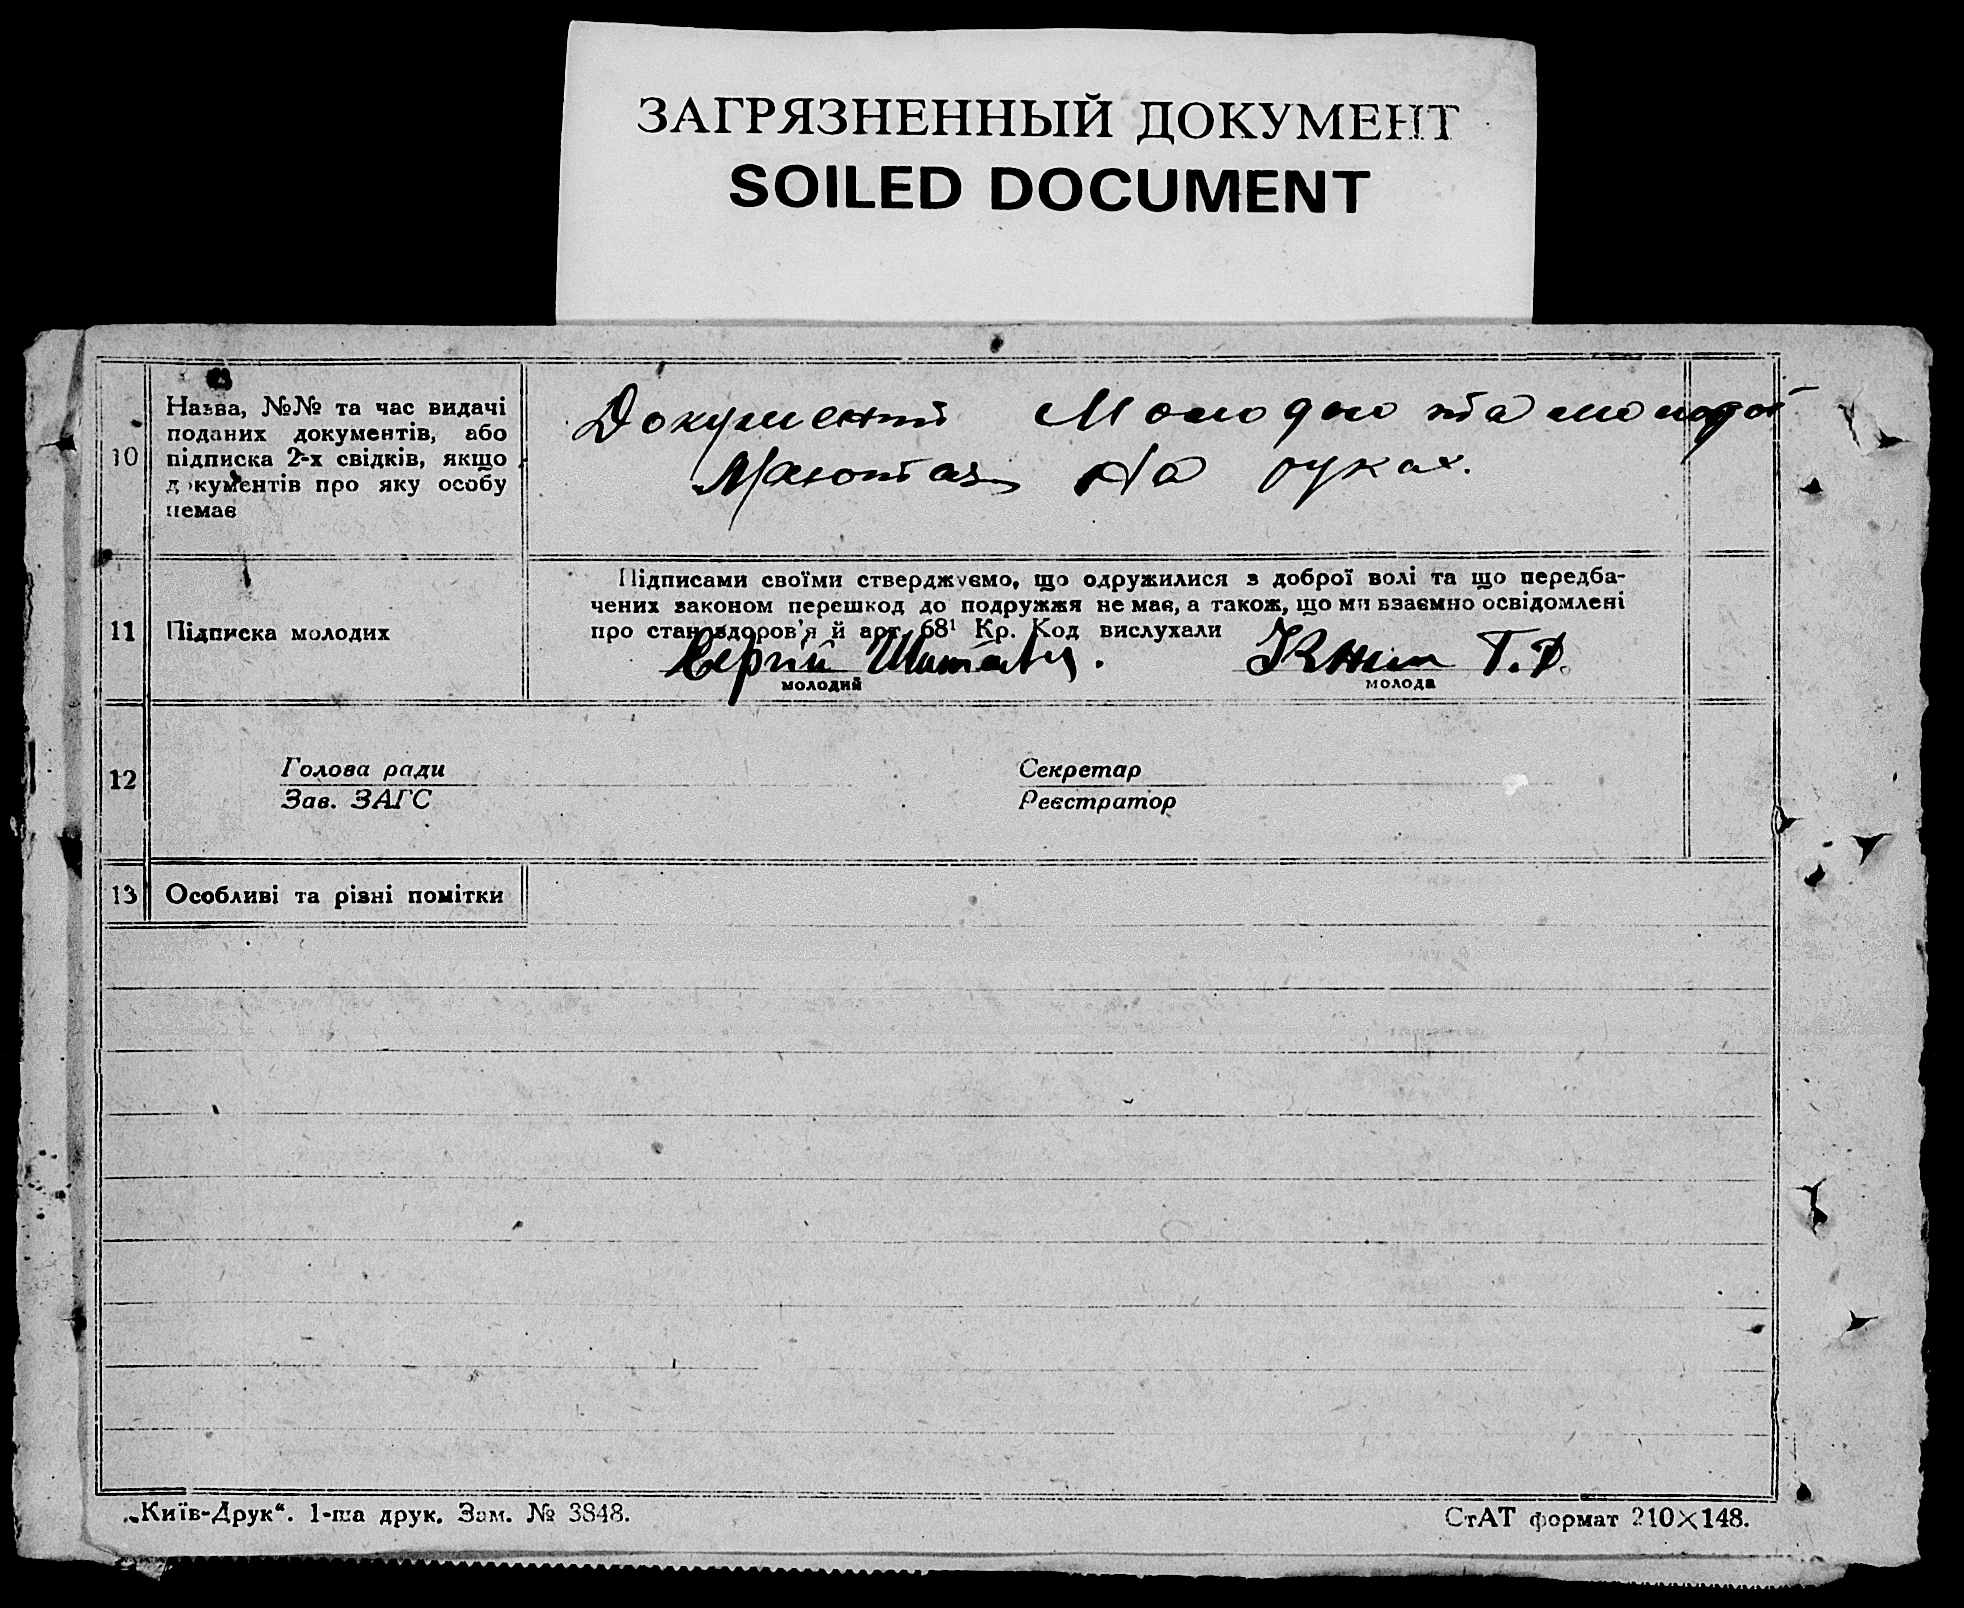 ЗАГРЯЗНЕННЫЙ ДОКУМЕНТ
SOILED DOCUMENT
10
Назва, №№ та час видачі
поданих документів, або
підписка 2-х свідків, якщо
документів про яку особу
немає
Документи Молодого та молодої
на руках.
11
Підписка молодих
Підписами своїми стверджуємо, що одружилися з доброї волі та що передба-
чених законом перешкод до подружжя не має, а також, що ми взаємно освідомлені
про стан здоров'я й арт. 68¹ Кр. Код вислухали
Сергій
Т.Д.
молодий
молода
12
Голова ради
Зав. ЗАГС
Секретар
Реєстратор
13
Особливі та різні помітки
„Київ-Друк“. 1-ша друк. Зам. № 3848.
СтАТ формат 210×148.